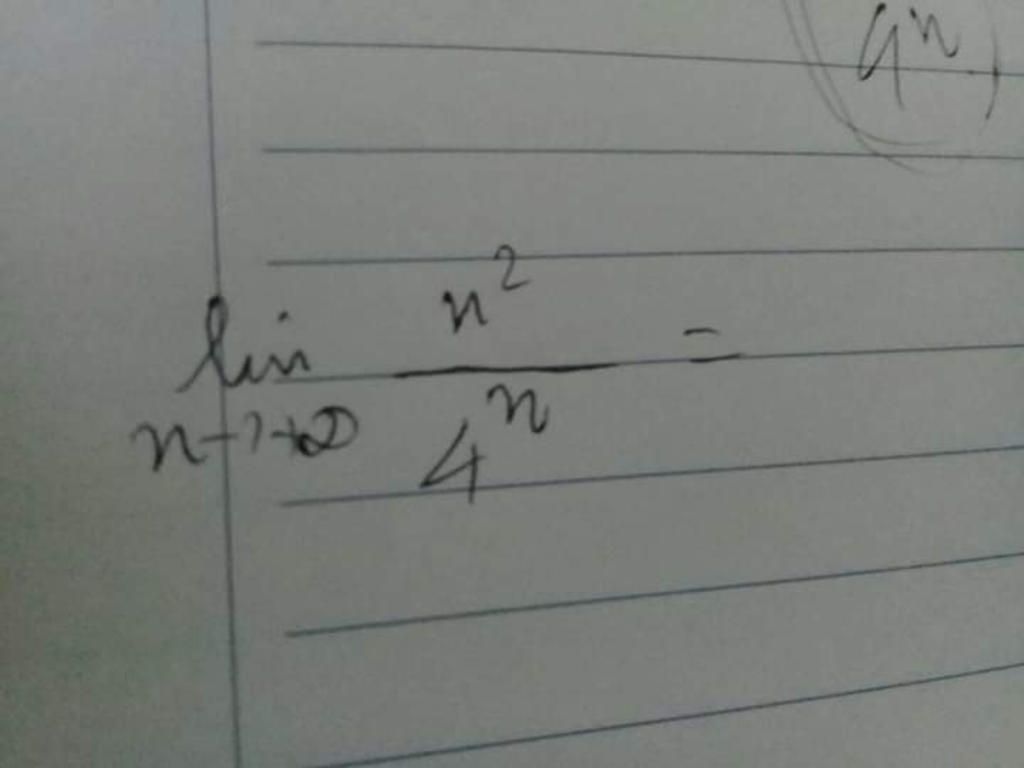 4^n
lim n→+∞ n^2 / 4^n =